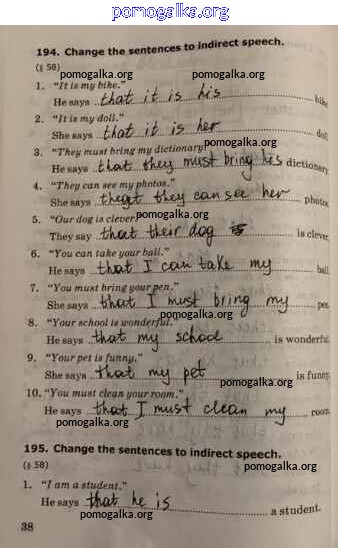 pomogalka.org
194. Change the sentences to indirect speech.
(§ 58) pomogalka.org pomogalka.org
1. "It is my bike."
He says that it is his bike
pomogalka.org
2. "It is my doll."
She says that it is her doll
pomogalka.org
3. "They must bring my dictionary
He says that they must bring his dictionary
pomogalka.org
4. "They can see my photos."
She says they can see her photos
pomogalka.org
5. "Our dog is clever
They say that their dog is clever
pomogalka.org
6. "You can take your ball."
He says that I can take my ball
pomogalka.org
7. "You must bring your pen."
She says that I must bring my pen
pomogalka.org
8. "Your school is wonderful.
He says that my school is wonderful
pomogalka.org
9. "Your pet is funny."
She says that my pet is funny
pomogalka.org
10. "You must clean your room."
He says that I must clean my room
pomogalka.org
195. Change the sentences to indirect speech.
(§ 58) pomogalka.org pomogalka.org
1. "I am a student."
He says that he is a student.
38 pomogalka.org